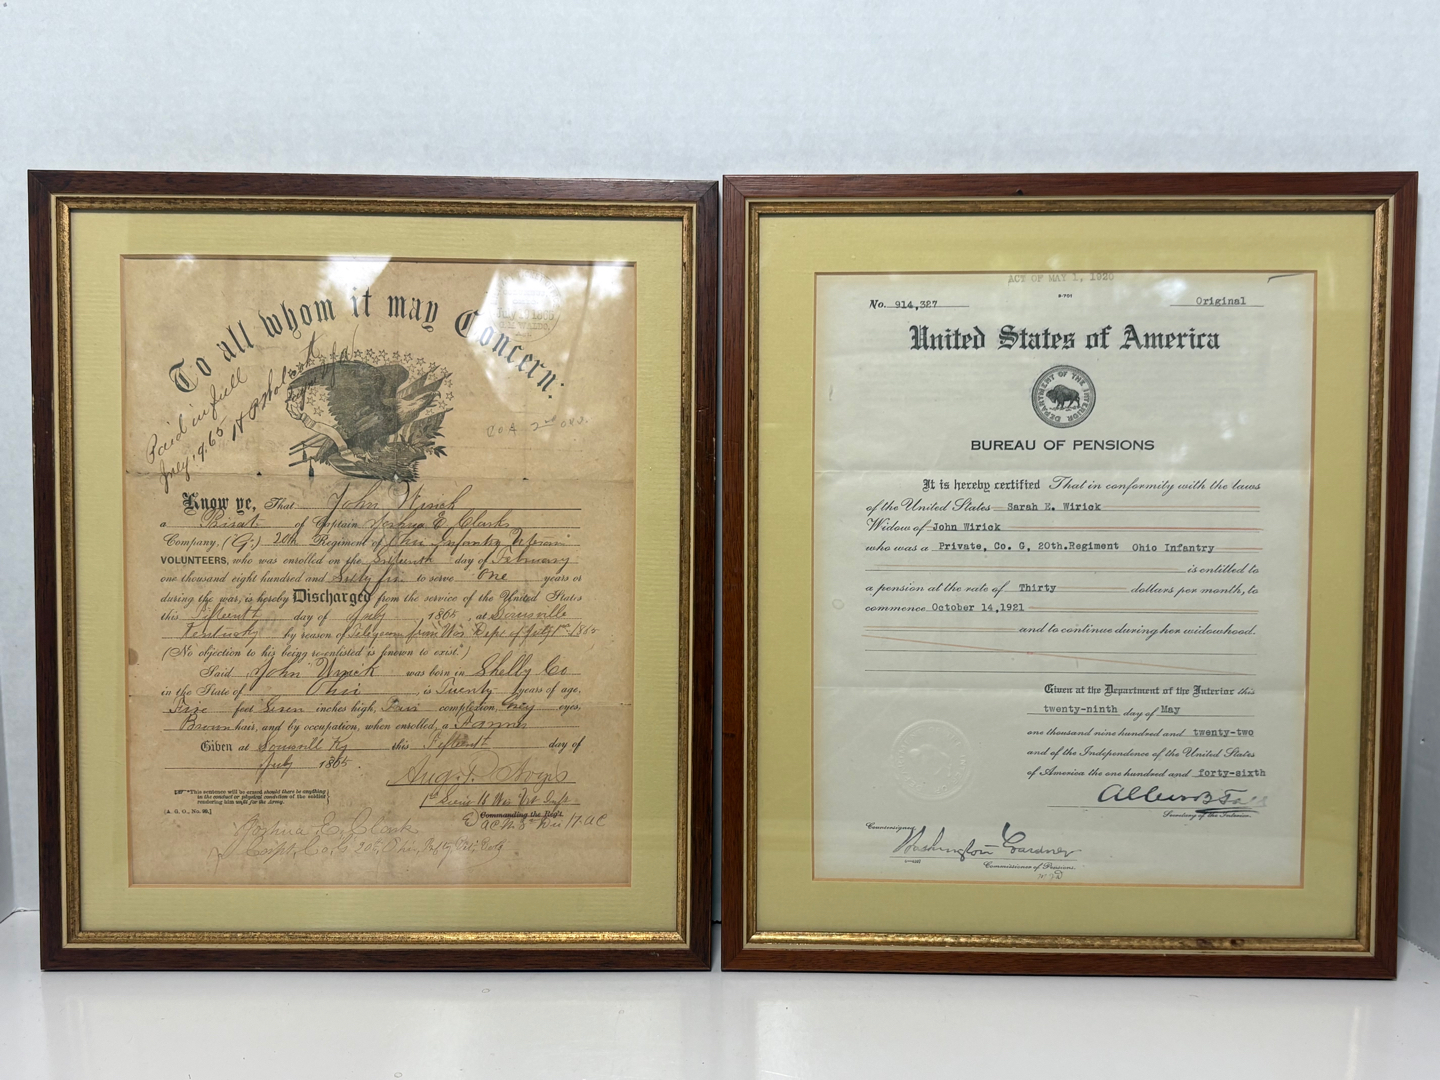 To all whom it may Concern:
Paid in full
July 19. 65
Co G 2nd
Know ye, That John Wirick
a Privat of Captain Joshua E. Clark
Company, (G.) 20th Regiment of Ohio Infantry
VOLUNTEERS, who was enrolled on the day of February
one thousand eight hundred and Sixty five to serve One years or
during the war, is hereby Discharged from the service of the United States
this Fifteenth day of July 1865, at Louisville
Kentucky by reason of Telegram from War Dept of July 1st 1865
(No objection to his being re-enlisted is known to exist.*)
Said John Wirick was born in Shelby Co
in the State of Ohio, is Twenty years of age,
Five feet Seven inches high, complexion, Grey eyes,
Brown hair, and by occupation, when enrolled, a Farmer
Given at Louisville Ky this Fifteenth day of
July 1865.
*This sentence will be erased should there be anything
in the conduct or physical condition of the soldier
rendering him unfit for the Army.
[A. G. O., No. 99.]
Commanding the Reg't.
Joshua E. Clark
Capt, Co, G 20th Ohio
ACT OF MAY 1, 1920
No. 914,327
Original
United States of America
DEPARTMENT OF THE INTERIOR
BUREAU OF PENSIONS
It is hereby certified That in conformity with the laws
of the United States Sarah E. Wirick
Widow of John Wirick
who was a Private, Co. G, 20th.Regiment Ohio Infantry
is entitled to
a pension at the rate of Thirty dollars per month, to
commence October 14,1921
and to continue during her widowhood.
Given at the Department of the Interior this
twenty-ninth day of May
one thousand nine hundred and twenty-two
and of the Independence of the United States
of America the one hundred and forty-sixth
Albert B Fall
Secretary of the Interior.
Countersigned,
Washington Gardner
Commissioner of Pensions.